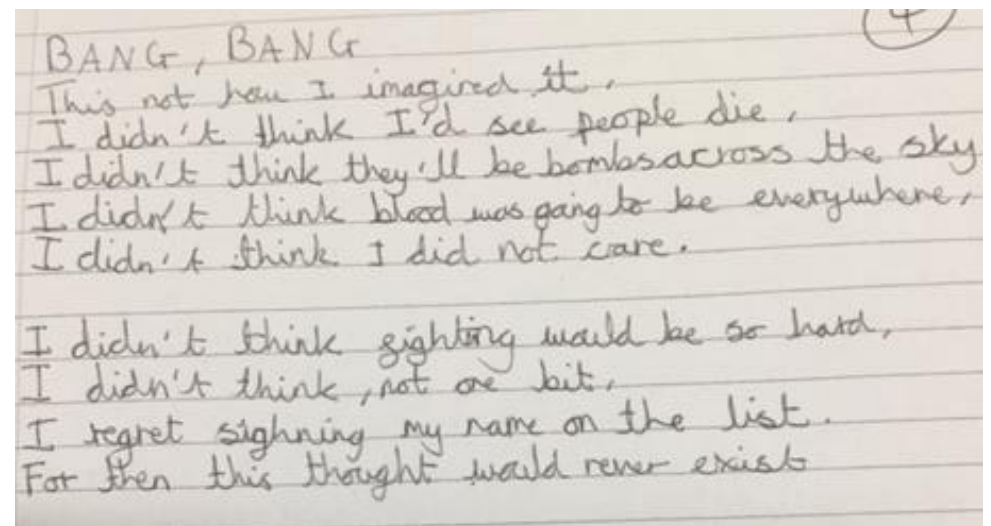 BANG, BANG
This not how I imagined it,
I didn't think I'd see people die,
I didn't think they'll be bombs across the sky
I didn't think blood was going to be everywhere,
I didn't think I did not care.
I didn't think fighting would be so hard,
I didn't think, not one bit,
I regret sighning my name on the list.
For then this thought would never exist